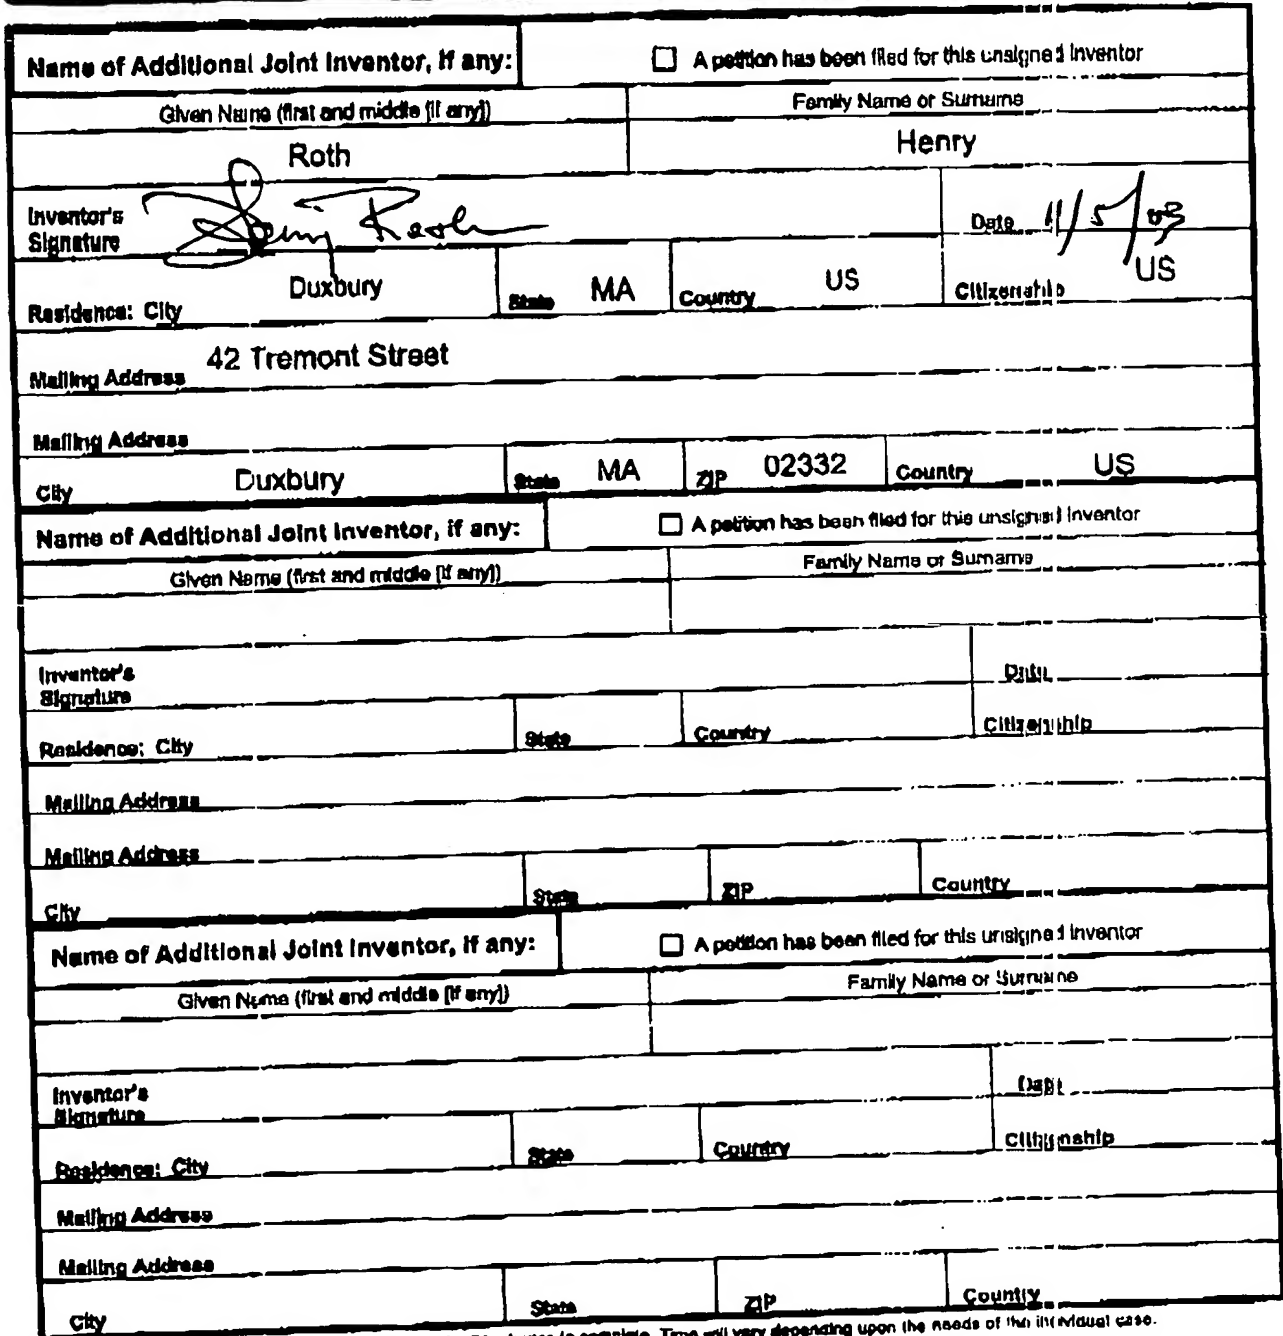 Name of Additional Joint Inventor, if any: ☐ A petition has been filed for this unsigned inventor
Given Name (first and middle [if any]) Family Name or Surname
Roth Henry
Inventor's Signature Roth Date 11/5/03
Residence: City Duxbury State MA Country US Citizenship US
Mailing Address 42 Tremont Street
Mailing Address
City Duxbury State MA ZIP 02332 Country US
Name of Additional Joint Inventor, if any: ☐ A petition has been filed for this unsigned inventor
Given Name (first and middle [if any]) Family Name or Surname
Inventor's Signature Date
Residence: City State Country Citizenship
Mailing Address
Mailing Address
City State ZIP Country
Name of Additional Joint Inventor, if any: ☐ A petition has been filed for this unsigned inventor
Given Name (first and middle [if any]) Family Name or Surname
Inventor's Signature Date
Residence: City State Country Citizenship
Mailing Address
Mailing Address
City State ZIP Country
complete. Time will vary depending upon the needs of the individual case.